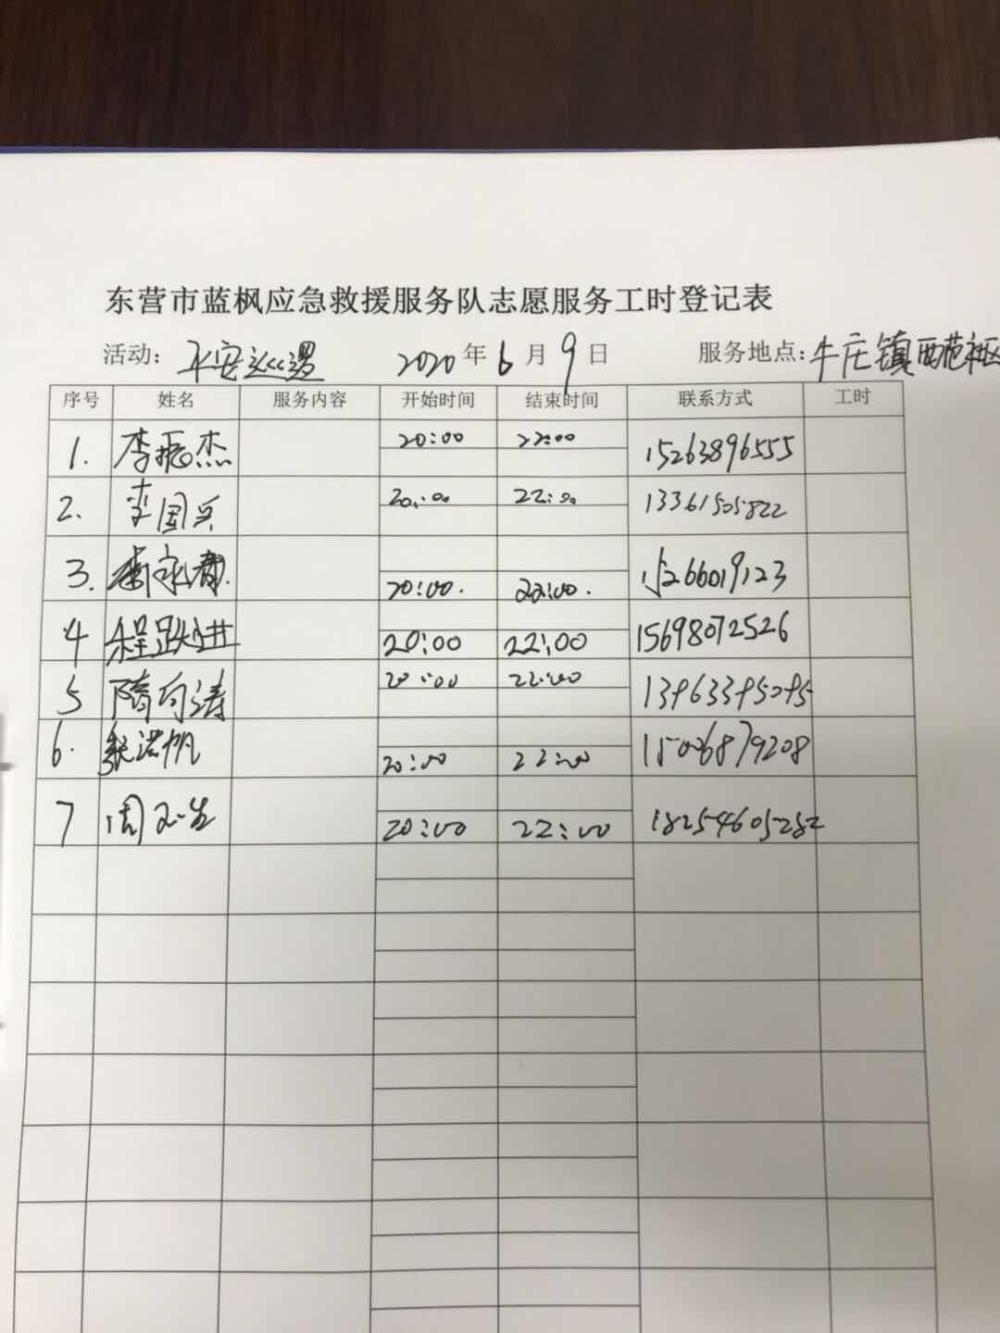 东营市蓝枫应急救援服务队志愿服务工时登记表
活动: 平安巡逻 2020 年 6 月 9 日 服务地点: 牛庄镇西范社区
序号 姓名 服务内容 开始时间 结束时间 联系方式 工时
1. 李振杰 20:00 22:00 15263896555
2. 李国兵 20:00 22:00 13361505822
3. 20:00. 22:00. 15266019123
4 程跃进 20:00 22:00 15698072526
5 隋向涛 20:00 22:00 13963395095
6. 张洪帆 20:00 22:00 15006879208
7 周 20:00 22:00 18254605282